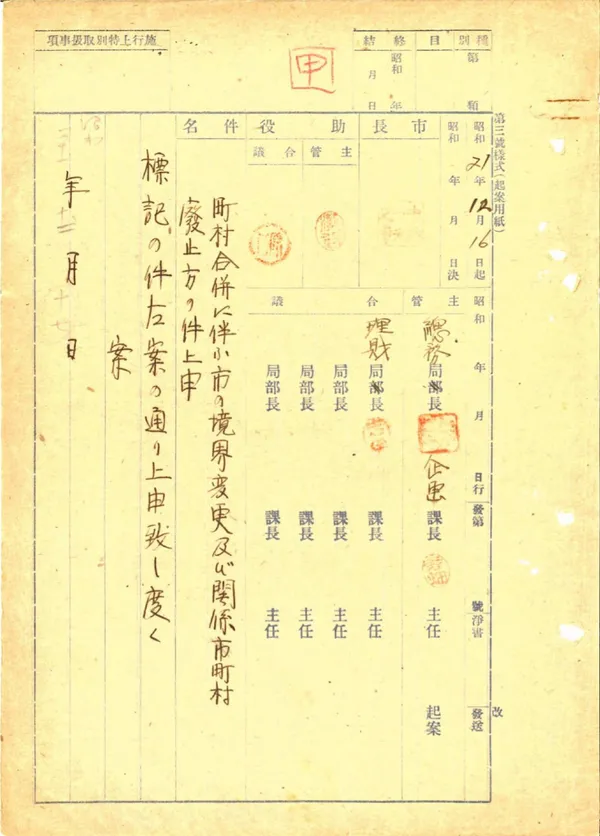 第三號樣式(起案用紙)
改
種別
目
第
類
終結
昭和
年
月
日
施行上特別取扱事項
甲
昭和21年12月16日起
昭和 年 月 日決
昭和 年 月 日行
發第 號
淨書
發送
市長
助役
主管
合議
件名
主管
合議
總務局部長
企画課長
主任
起案
理財局部長
課長
主任
局部長
課長
主任
局部長
課長
主任
局部長
課長
主任
町村合併に伴ふ市の境界変更及び関係市町村
廃止方の件上申
標記の件左案の通り上申致し度く
案
昭和
年十二月十七日